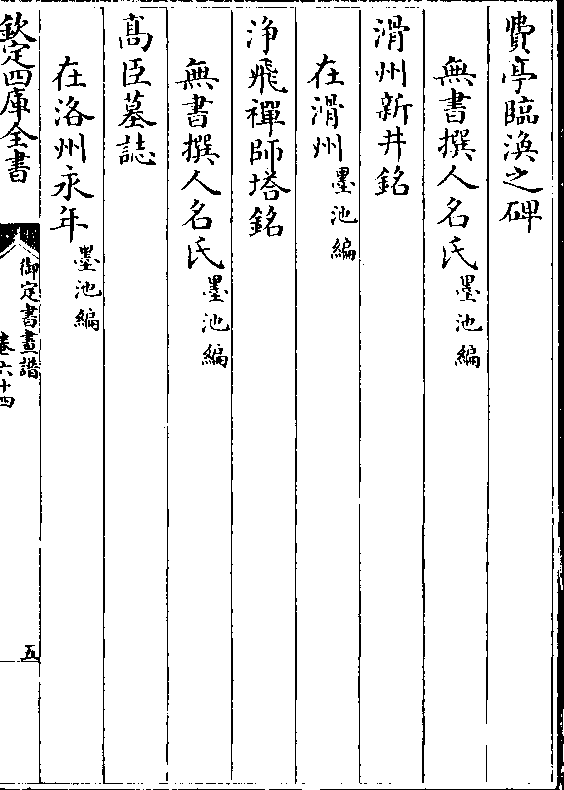 費亭臨渙之碑
無書撰人名氏墨池編
滑州新井銘
在滑州墨池編
浄飛禪師塔銘
無書撰人名氏墨池編
髙臣墓誌
在洛州永年墨池編
欽定四庫全書
御定書畫譜
卷六十四
五